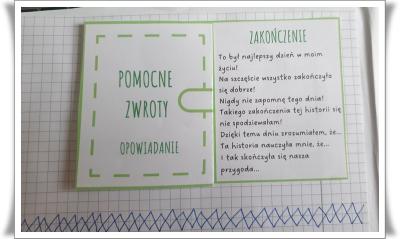 POMOCNE
ZWROTY
OPOWIADANIE
ZAKOŃCZENIE
To był najlepszy dzień w moim
życiu!
Na szczęście wszystko zakończyło
się dobrze!
Nigdy nie zapomnę tego dnia!
Takiego zakończenia tej historii się
nie spodziewałam!
Dzięki temu dniu zrozumiałem, że...
Ta historia nauczyła mnie, że...
I tak skończyła się nasza
przygoda...